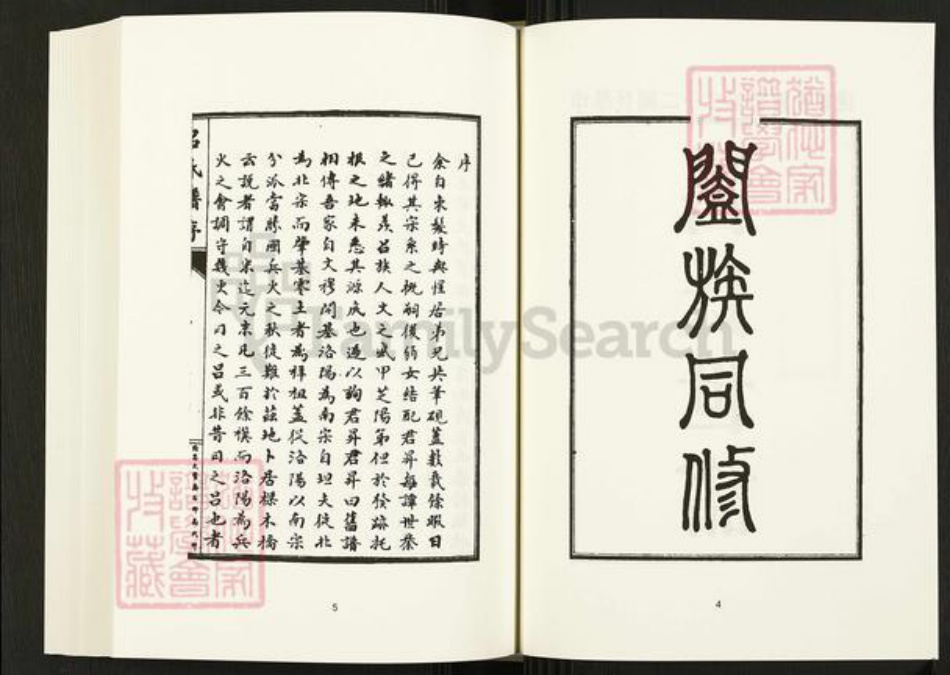 闔族同修
4
序
余自束髮時與惺居弟兄共筆硯蓋數載餘暇日
已得其宗系之概嗣復弱女結配君昇每譚世系
之緒輒羨呂族人文之盛甲芝陽第但於發跡托
根之地未悉其源流也適以詢君昇君昇曰舊譜
相傳吾家自文穆開基洛陽為南宗自坦夫徙北
為北宗而肇基寧王者為祥祖蓋從洛陽以南宗
分派當勝國兵火之秋徙難於茲地卜居樑木橋
云說者謂自宋迄元末凡三百餘禩而洛陽為兵
火之會調守幾更今日之呂或非昔日之呂也者
呂氏譜序
5
FamilySearch